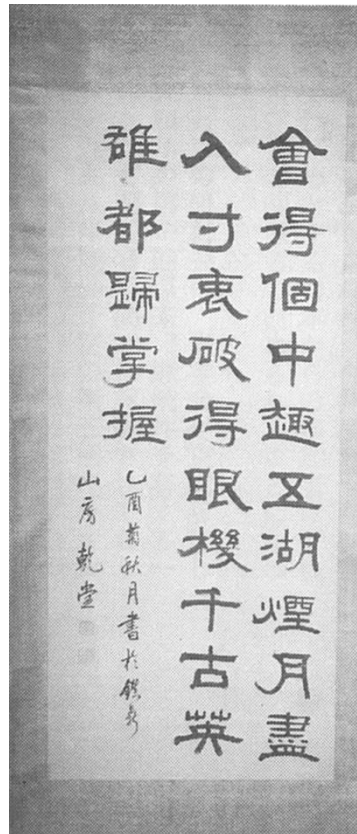 會得個中趣五湖煙月盡
入寸衷破得眼機千古英
雄都歸掌握
乙酉菊秋月書於
山房 乾堂